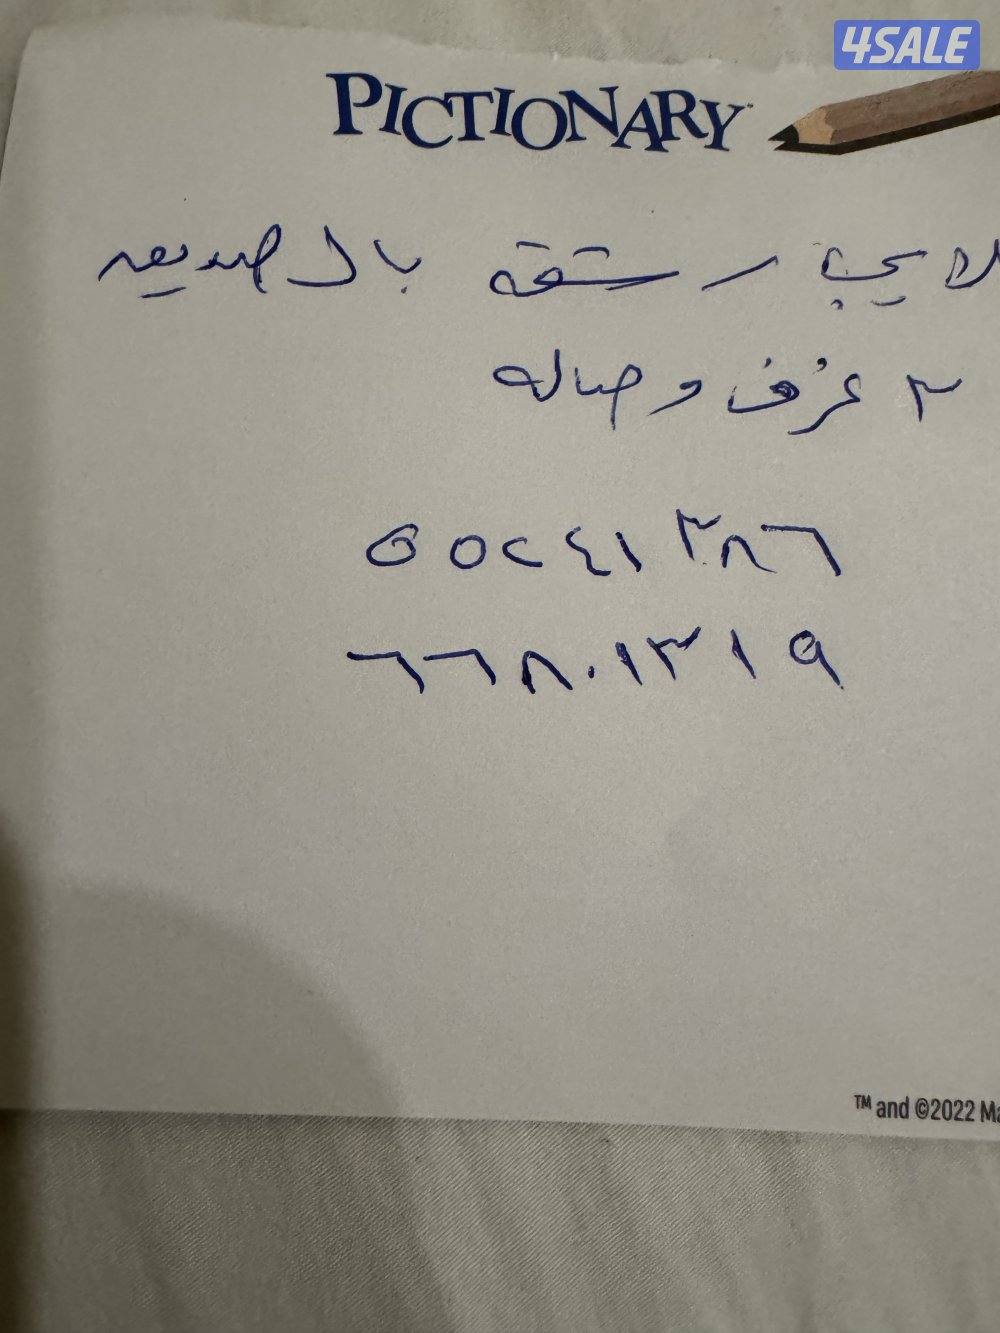 4SALE
PICTIONARY™
للايجار شقة بالصديق
٣ غرف وصاله
٥٥٢٤١٣٨٦
٦٦٨٠١٣١٩
™ and ©2022 Ma